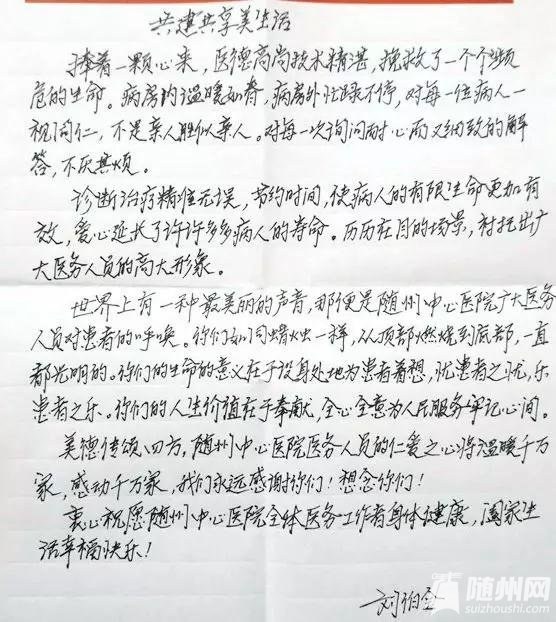 共建共享美生活
捧着一颗心来，医德高尚技术精湛，挽救了一个个频
危的生命。病房内温暖如春，病房外忙碌不停，对每一位病人一
视同仁，不是亲人胜似亲人。对每一次询问耐心而又细致的解
答，不厌其烦。
诊断治疗精准无误，节约时间，使病人的有限生命更加有
效，爱心延长了许许多多病人的寿命。历历在目的场景，衬托出广
大医务人员的高大形象。
世界上有一种最美丽的声音，那便是随州中心医院广大医务
人员对患者的呼唤。你们如同蜡烛一样，从顶部燃烧到底部，一直
都光明的。你们的生命的意义在于设身处地为患者着想，忧患者之忧，乐
患者之乐。你们的人生价值在于奉献，全心全意为人民服务牢记心间。
美德传颂四方，随州中心医院医务人员的仁爱之心将温暖千万
家，感动千万家，我们永远感谢你们！想念你们！
衷心祝愿随州中心医院全体医务工作者身体健康，阖家生
活幸福快乐！
刘伯
随州网
suizhoushi.com